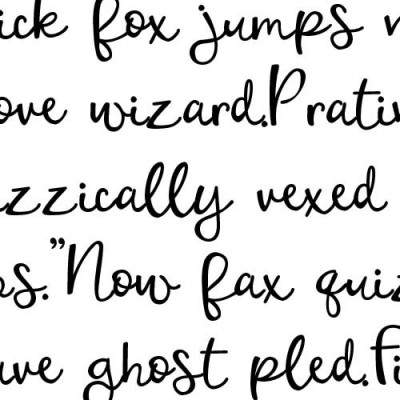 ick fox jumps n
ove wizard.Pratin
zzically vexed
s."Now fax quiz
ave ghost pled.Fi